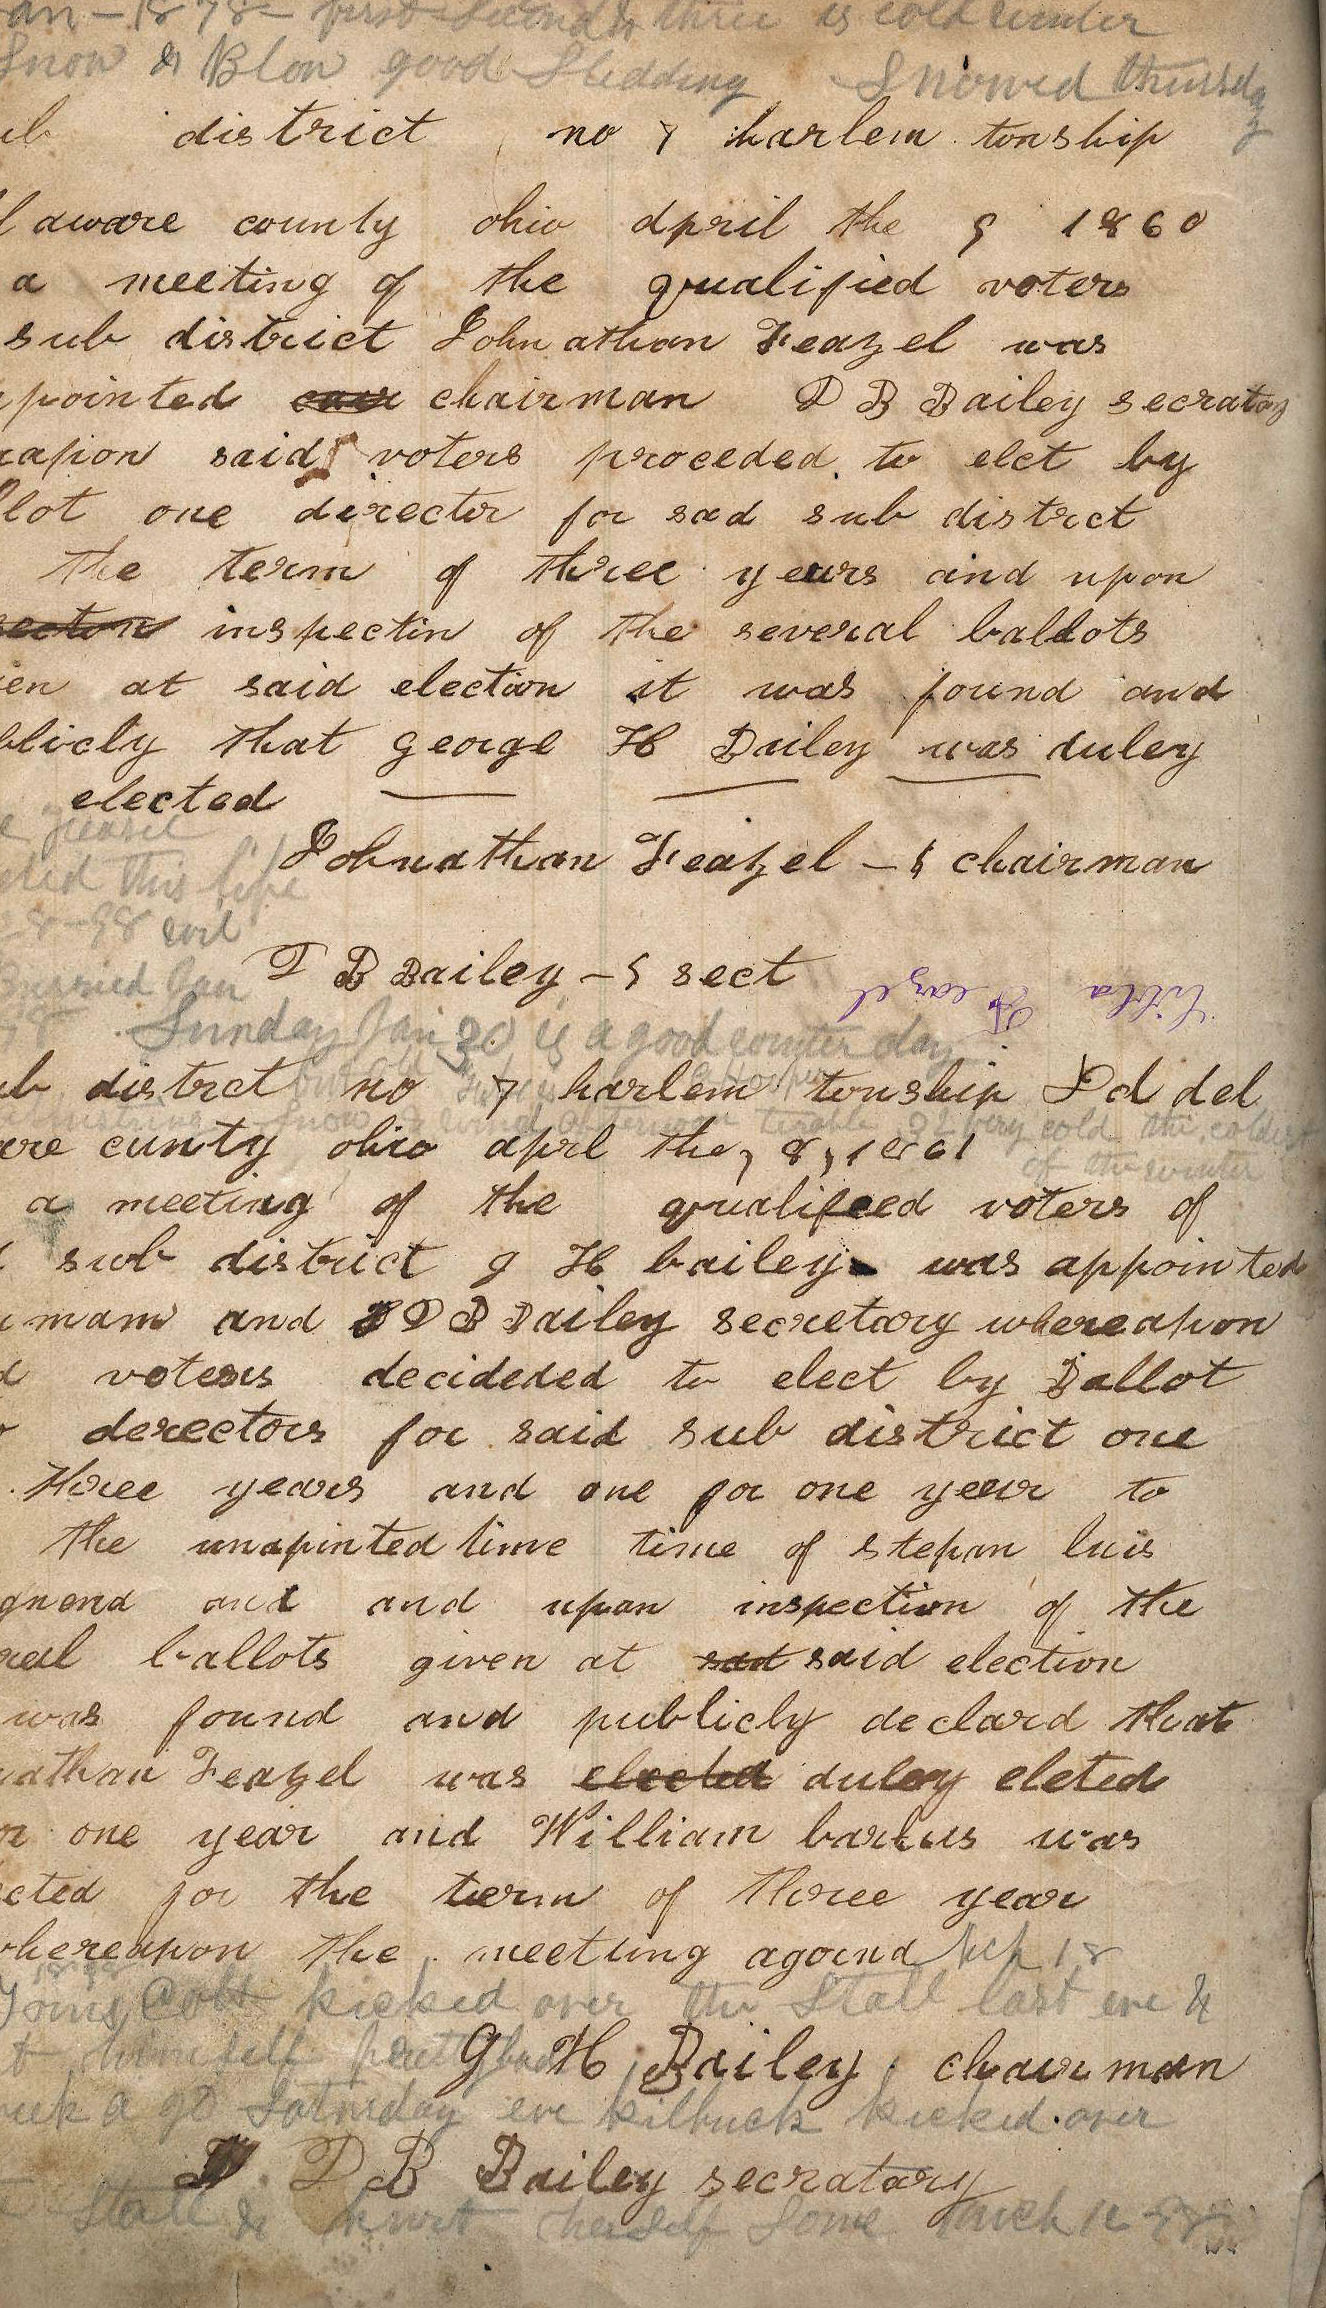 an - 1898 - first Second & three is cold winter
Snow & Blow good Sledding Snowed thursday
ub district no 7 harlem tonship
laware county ohio april the 9 1860
a meeting of the qualified voters
sub district Johnathan Feazel was
pointed chairman D B Bailey secratary
reapion said voters proceded to elct by
llot one directer for sad sub distrct
the term of three years and upon
secton inspectin of the several ballots
en at said election it was found and
blicly that george H Bailey was duley
elected
Johnathan Feazel - s chairman
eted this life
-8-98
D B Bailey - s sect
Buried Jan
Feazel
98 Sunday Jan 30 is a good winter day
ub distrct no 7 harlem tonship Dd del
very cold the coldest
are cunty ohio aprl the, 8, 1861
of the winter
a meeting of the qualifeed voters of
sub district g H bailey was appointed
mam and D B Bailey secretary whereapon
d voters decideded to elect by Ballot
derectors for said sub district one
three years and one for one year to
the unapinted time time of stepan luis
gnend and and upon inspection of the
ral ballots given at sad said election
was found and publicly declard that
nathan Feazel was elected duley eleted
or one year and William barkus was
cted for the term of three year
whereapon the meetting agound
Young Colt kicked over the Stall last eve &
t himself
G H Bailey chairman
eek a go Saturday eve kilbuck kicked over
D B Bailey secratary
Stall & hurt herself Some